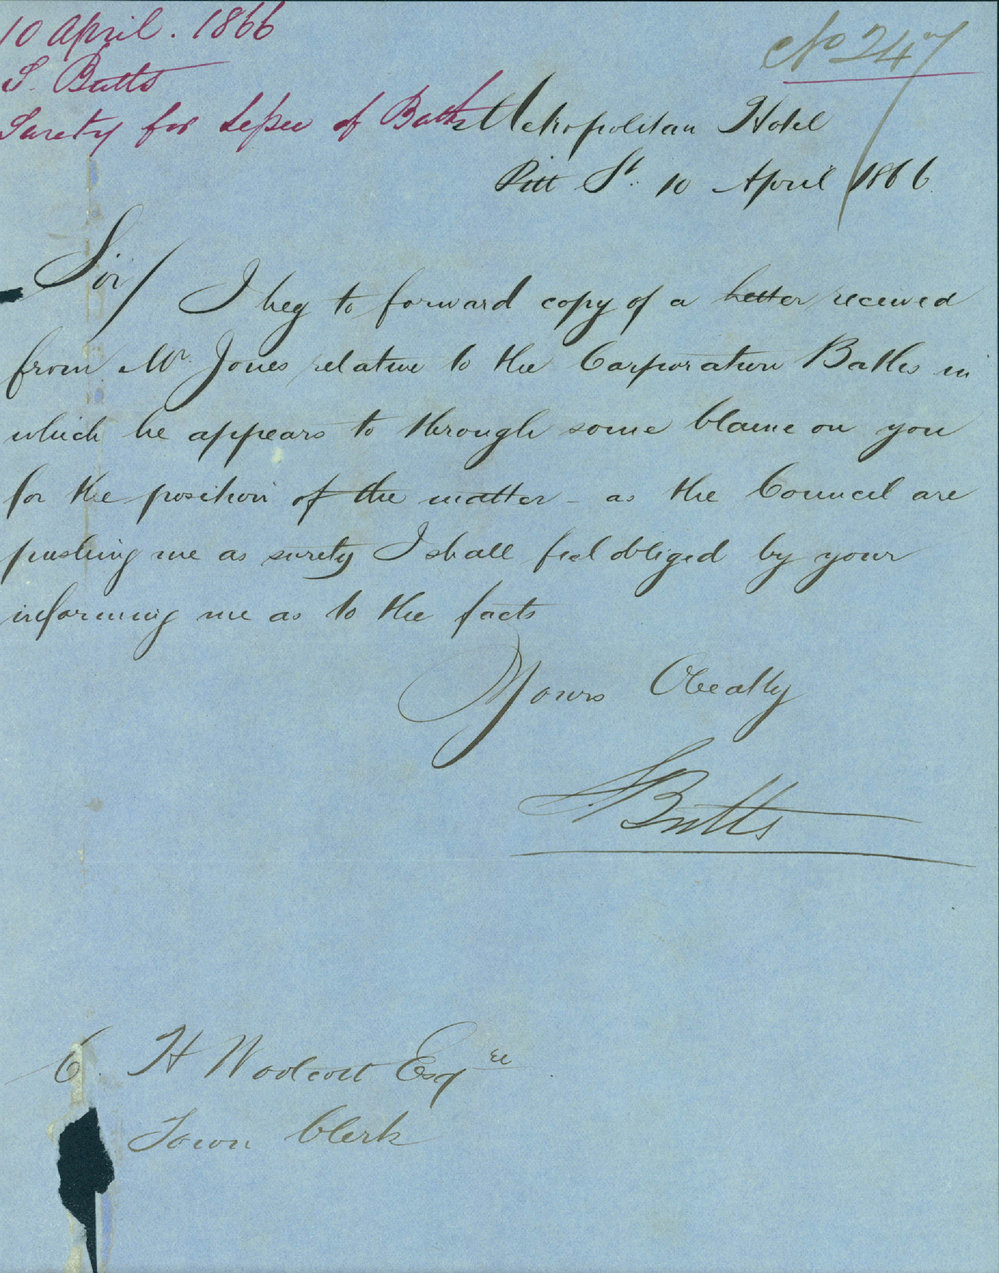 10 April. 1866
S. Butts
Surety for Lessee of Baths
No 247
Metropolitan Hotel
Pitt St. 10 April 1866
Sir/ I beg to forward copy of a letter received
from Mr. Jones relative to the Corporation Baths in
which he appears to through some blame on you
for the position of the matter - as the Council are
pushing me as surety I shall feel obliged by your
informing me as to the facts
Yours Obeatly
S. Butts
C. H Woolcott Esqre
Town Clerk